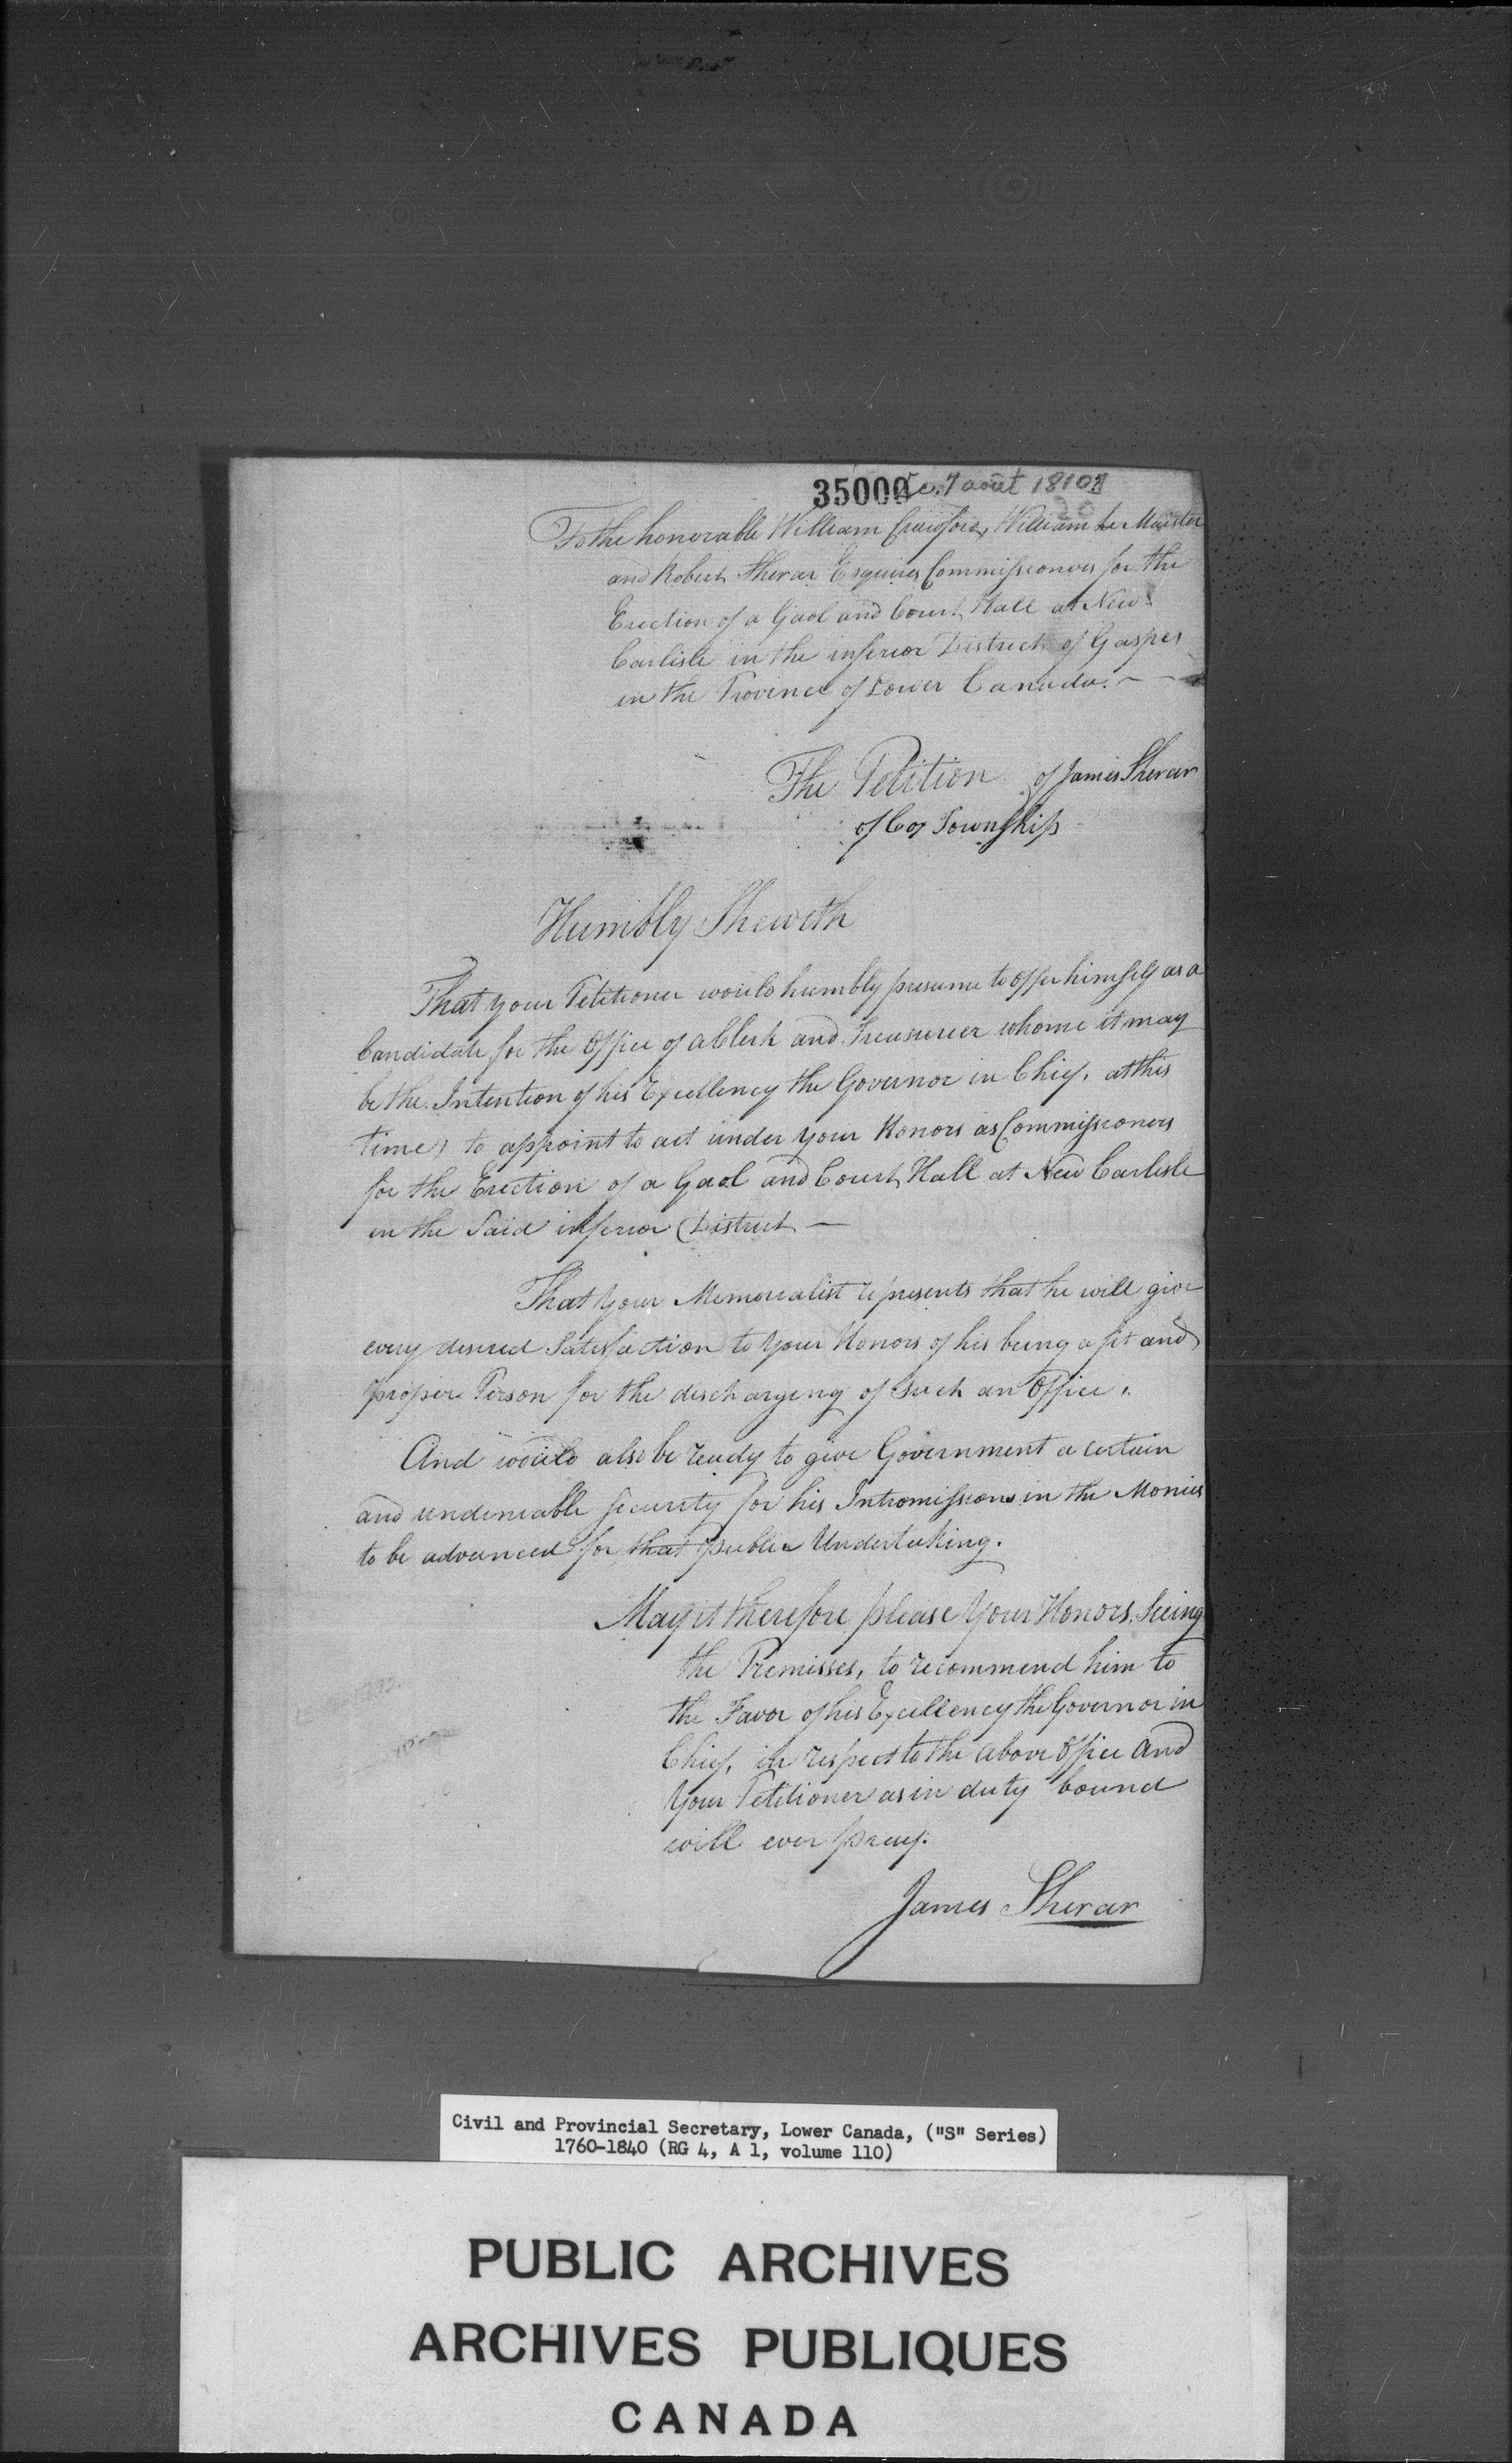 35000 7 août 1810
To the honorable William Crawford, William Le Maistre
and Robert Sherar Esquires Commissioners for the
Erection of a Gaol and Court Hall at New
Carlisle in the inferior District of Gaspes
in the Province of Lower Canada. —
The Petition of James Sherar
of Cox Township
Humbly Sheweth
That your Petitioner would humbly presume to offer himself as a
Candidate for the Office of a Clerk and Treasureer whome it may
be the Intention of his Excellency the Governor in Chief, at this
time, to appoint to act under your Honors as Commissioners
for the Erection of a Gaol and Court Hall at New Carlisle
in the Said inferior District —
That your Memorialist represents that he will give
every desired Satisfaction to your Honors of his being a fit and
proper Person for the discharging of Such an Office.
And would also be ready to give Government a certain
and undeniable Security for his Intromissions in the Monies
to be advanced for that public Undertaking.
May it therefore please Your Honors, Seeing
the Premisses, to recommend him to
the Favor of his Excellency the Governor in
Chief, in respect to the above Office and
Your Petitioner as in duty bound
will ever pray.
James Sherar
Civil and Provincial Secretary, Lower Canada, ("S" Series)
1760-1840 (RG 4, A 1, volume 110)
PUBLIC ARCHIVES
ARCHIVES PUBLIQUES
CANADA